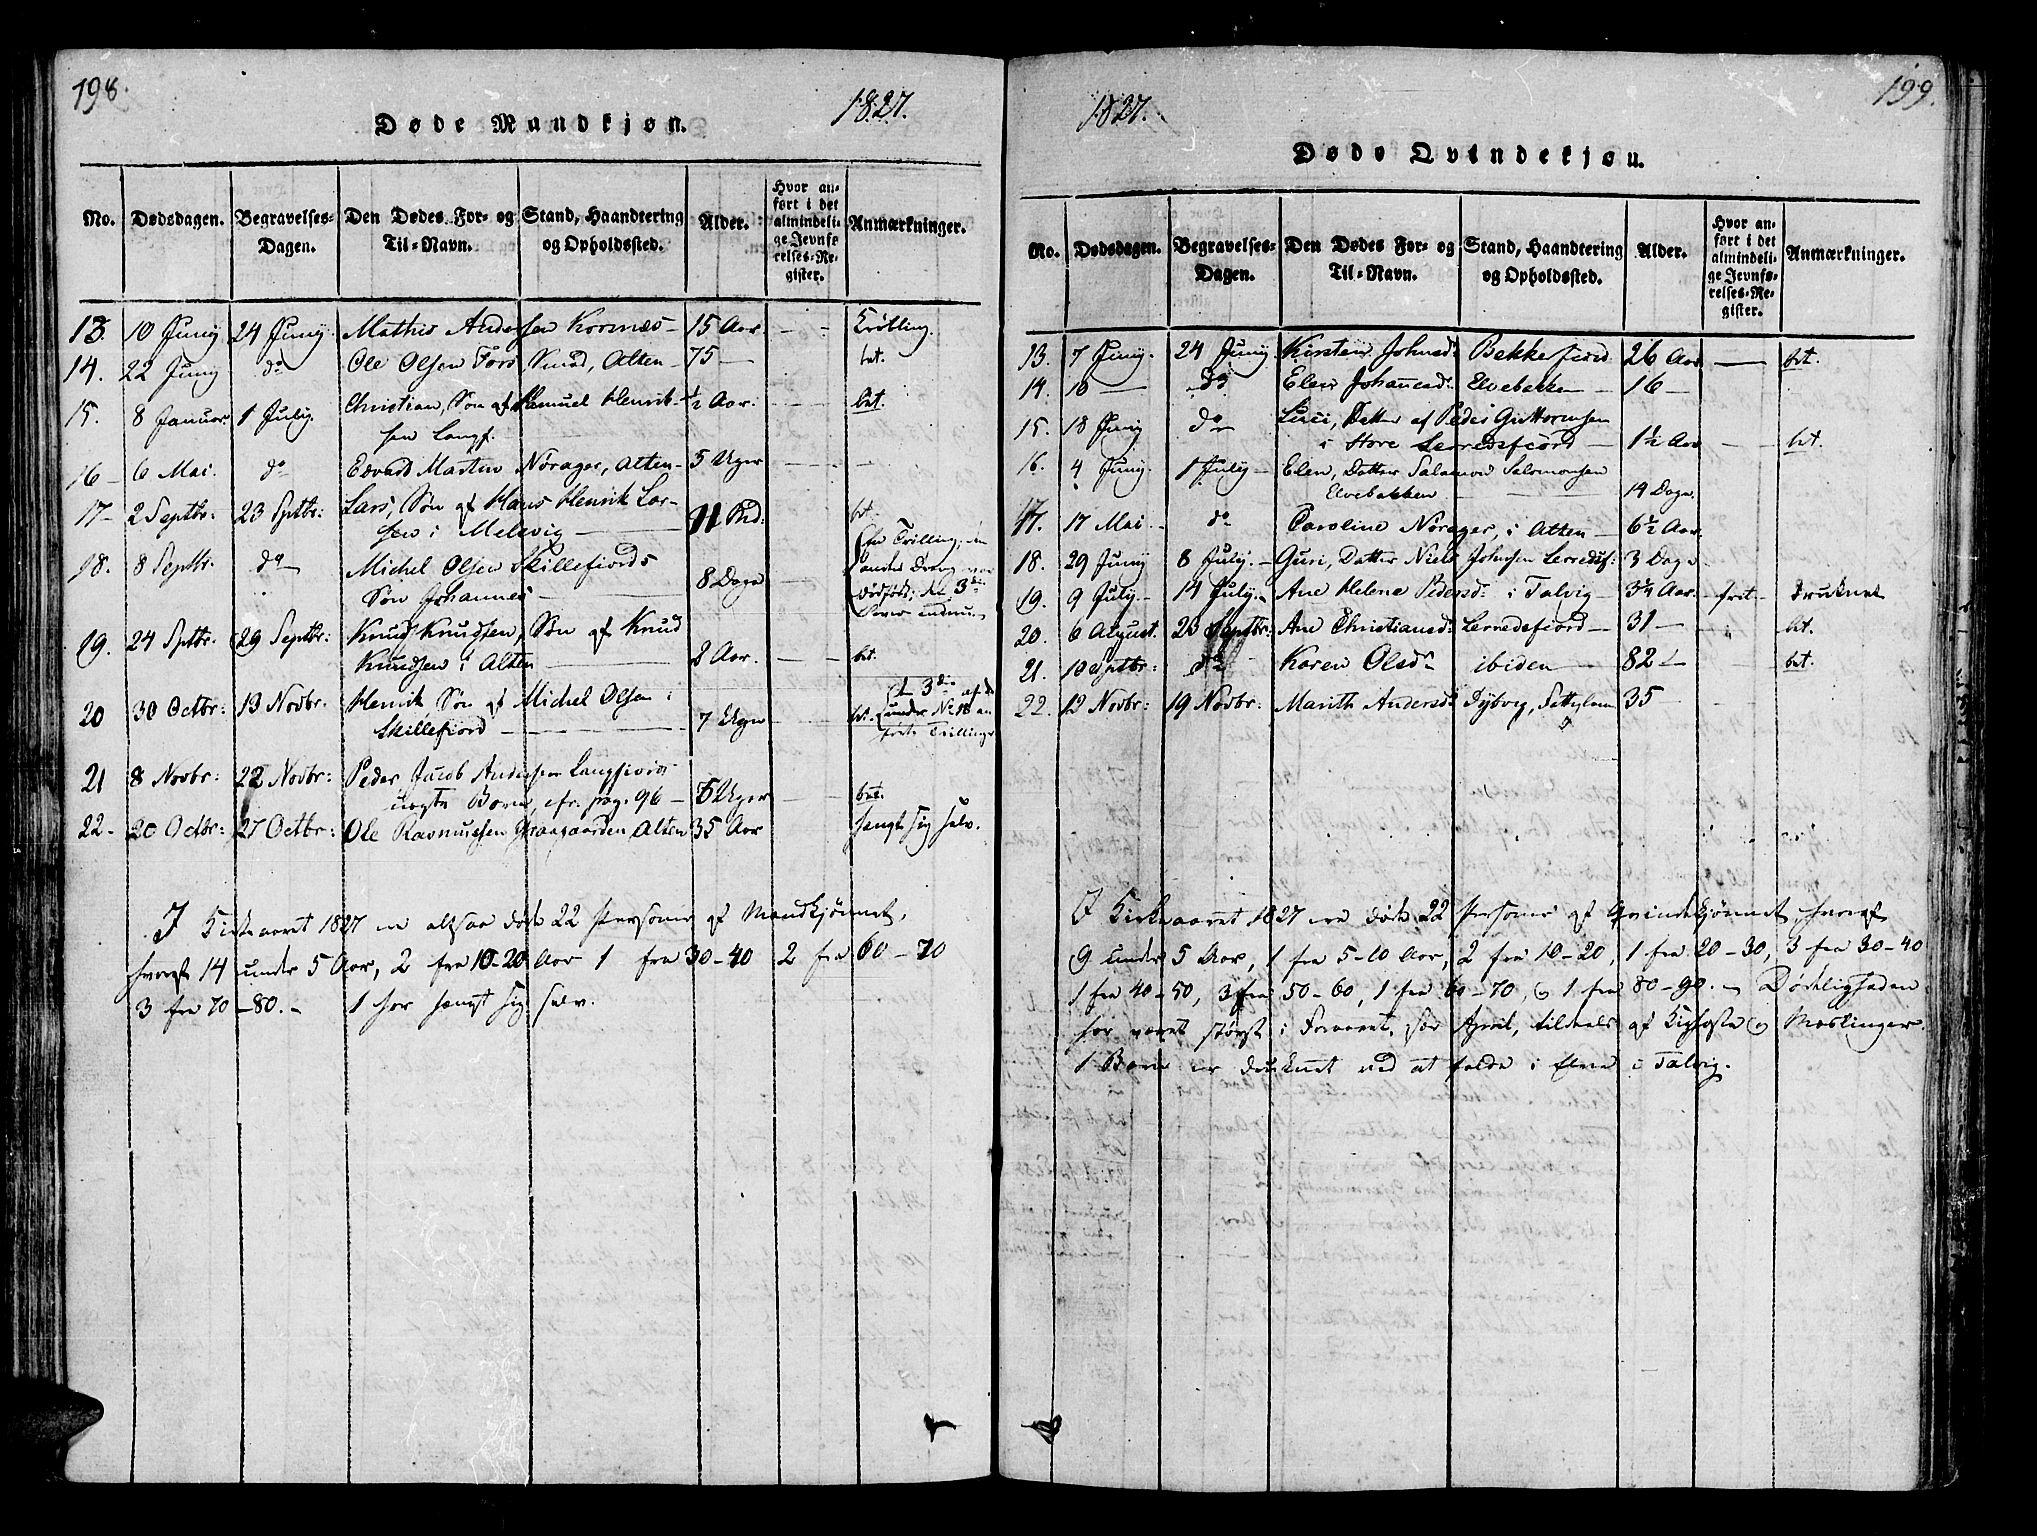 198.
1827.
Døde Mandkjøn.
No. Dødsdagen. Begravelses-Dagen. Den Dødes For- og Til-Navn. Stand, Haandtering og Opholdssted. Alder. Hvor anført i det almindelige Jevnførelses-Register. Anmærkninger.
13. 10 Junij 24 Junij. Mathis Andersen Kornæs 15 Aar
14. 22 Junij do Ole Olsen Fors Alten 75 — bet.
15. 8 Januar. 1 Julij. Christian, Søn af Samuel Henrik- ½ Aar. bet.
sen Langf.
16 6 Mai. do Edvard Martin Norager, Alten 5 Uger
17 2 Septbr. 23 Sptbr: Lars, Søn af Hans Henrik Lar- 11 bet.
sen i Melsvig
18. 8 Septbr. do Michel Olsen Skillefjords En Trilling; den
anden
Søn Johannes 8 Dage dødfødt; den 3die
lever endnu.
19. 24 Sptbr. 29 Septbr: Knud Knudsen, Søn af Knud
Knudsen i Alten 2 Aar. bet.
20 30 Octbr: 13 Novbr. Henrik Søn af Michel Olsen i den 3die af de
Skillefiord 7 Uger bet. under No 18 an-
førte Trillinger
21 8 Novbr: 22 Novbr: Peder Jacob Andersen Langfiords
uægte Barn, cfr. pag. 96 5 Uger bet.
22 20 Octbr: 27 Octbr: Ole Rasmussen Graagaarden, Alten 35 Aar hængt sig selv.
I Kirkeaaret 1827 ere altsaa døde 22 Personer af Mandkjønnet,
hvoraf 14 under 5 Aar, 2 fra 10-20 Aar 1 fra 30-40 2 fra 60-70
3 fra 70-80. 1 har hængt sig selv.
199.
1827.
Døde Qvindekjøn.
No. Dødsdagen. Begravelses-Dagen. Den Dødes For- og Til-Navn. Stand, Haandtering og Opholdssted. Alder. Hvor anført i det almindelige Jevnførelses-Register. Anmærkninger.
13. 7 Junij. 24 Junij. Kirsten Johnsd. Bekkefiord 26 Aar bet.
14. 10 — do Elen Johannesd. Elvebakken 16 —
15. 18 Junij do Datter af Peder Guttormsen
i Store Lerredsfiord 1½ Aar bet.
16. 4 Junij. 1 Julij Elen, Datter Salamon Salomonsen
Elvebakken 14 Dage
17. 17 Mai. do Caroline Norager, i Alten 6½ Aar
18. 29 Junij 8 Julij. Guri, Datter Niels Johnsen Lerredsf: 3 Dage
19. 9 Julij. 14 Julij. Ane Helene Pedersd. i Talvig 3¼ Aar. frit. Druknet
20. 6 August. 23 Septbr: Ane Christiansd: Lerredsfiord 31 — bet.
21. 10 Sptbr: do Karen Olsdr ibidem 82 — bet.
22. 12 Novbr: 19 Novbr: Marith Andersd: Dybvig, 35
I Kirkeaaret 1827 ere døde 22 Personer af Qvindekjønnet, hvoraf
9 under 5 Aar, 1 fra 5-10 Aar, 2 fra 10-20, 1 fra 20-30, 3 fra 30-40
1 fra 40-50, 3 fra 50-60, 1 fra 60-70, og 1 fra 80-90. Dødeligheden
har været størst i Foraaret, især April, tildeels af Kighoste og Mæslinger.
1 Barn er druknet ved at falde i Elven i Talvig.